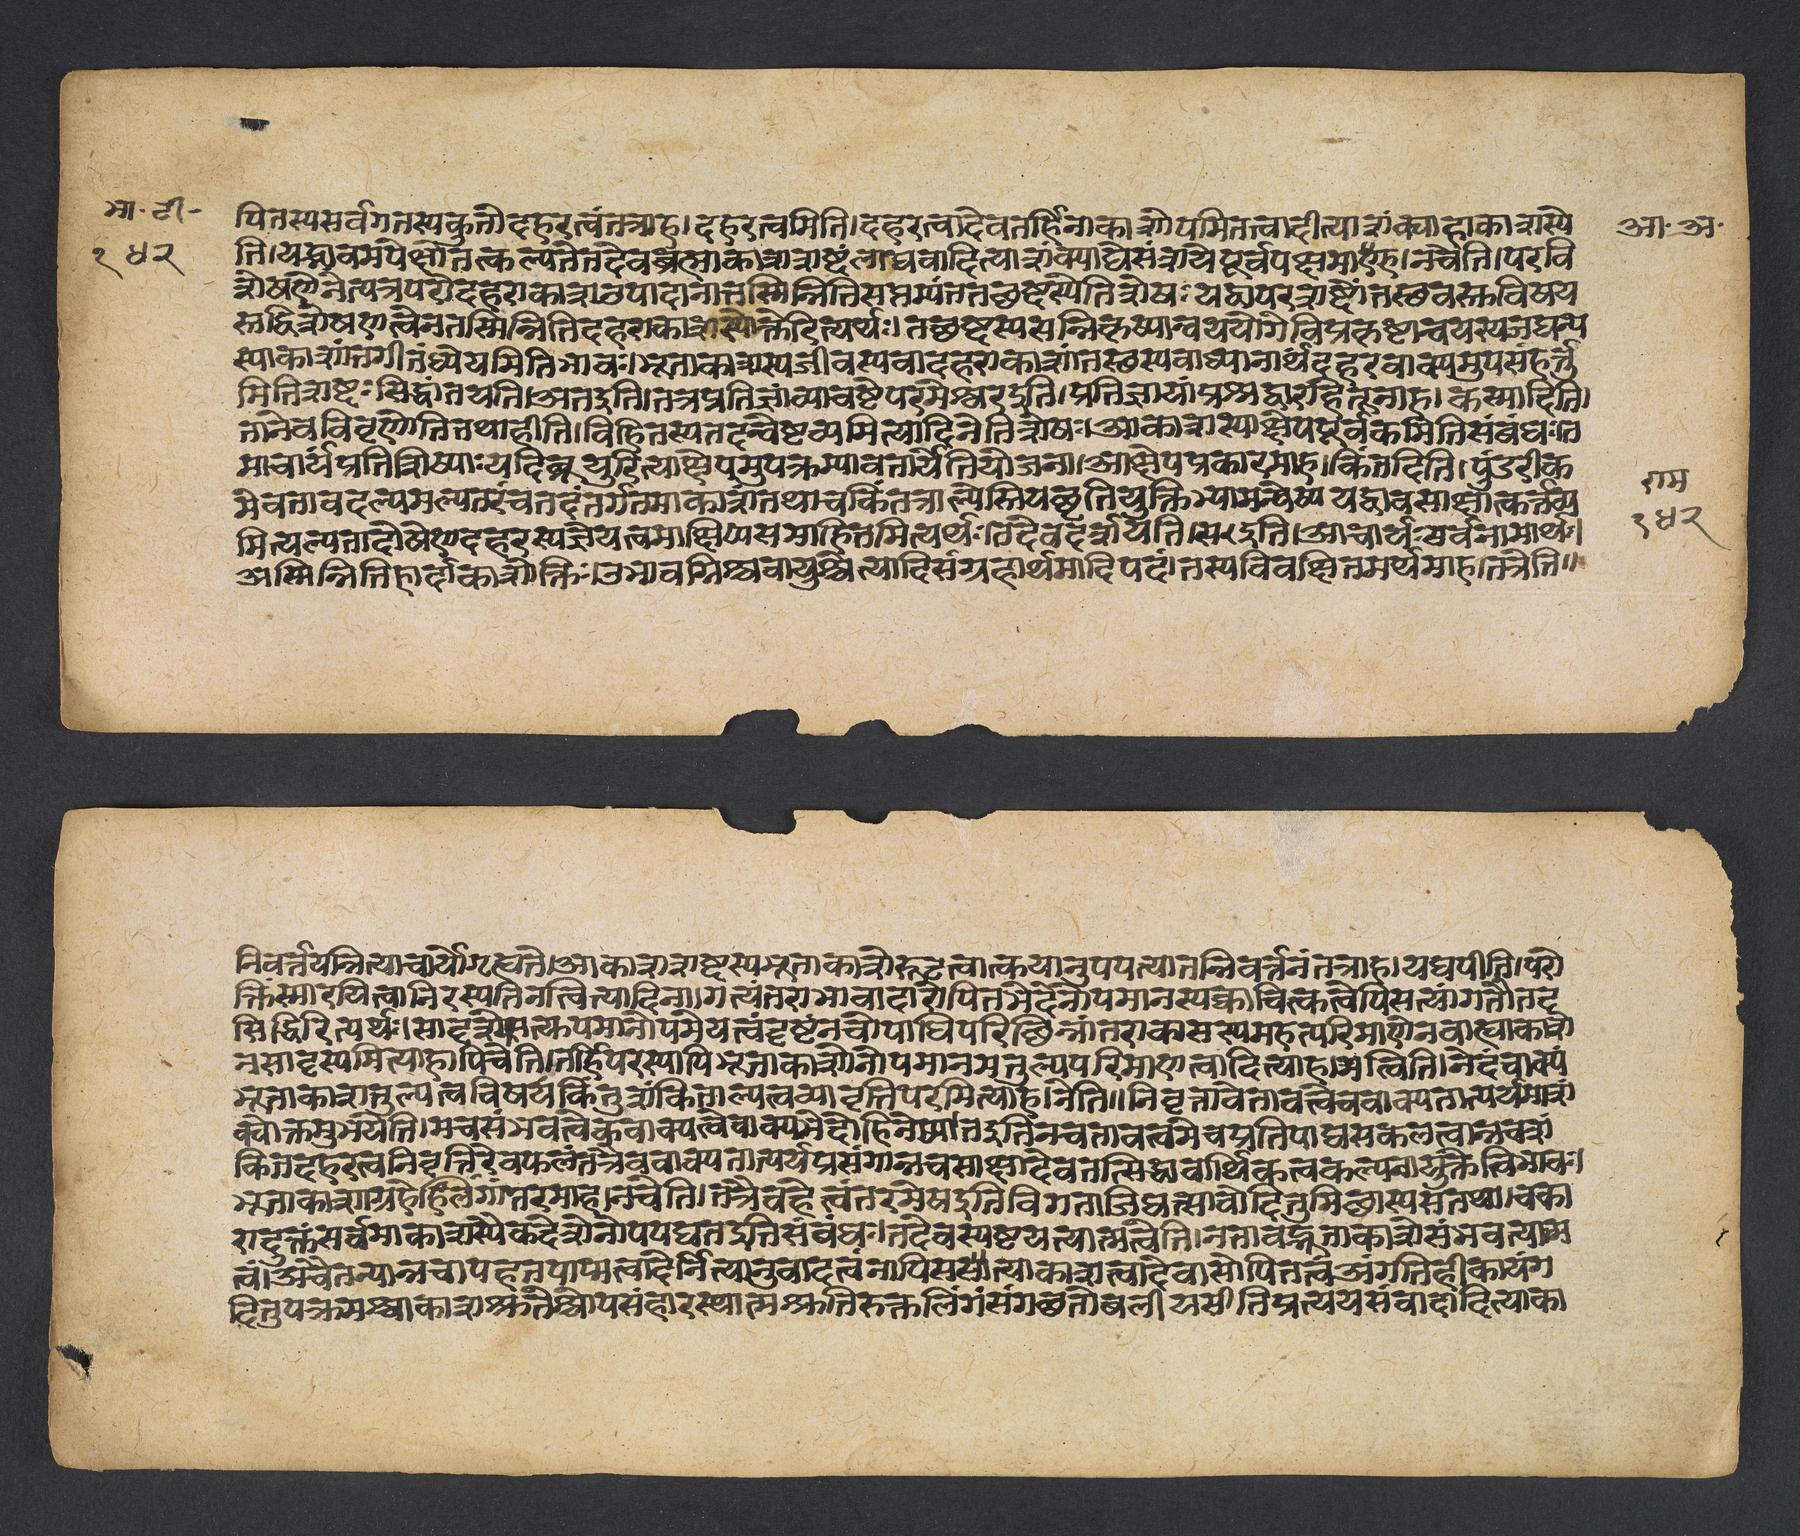 भा. टी-
१४२
पितस्यसर्वगतस्यकुतोदहरत्वंतत्राह। दहरत्वमिति। दहरत्वादेवतर्हिनाकाशोपमितत्वादीत्याशंक्याहाकाशस्ये
ति। यद्भावमपेक्ष्यौतत्कल्पतेतदेवब्रह्माकाशशब्दंलाघवादित्याशंक्याद्येसंशयेपूर्वपक्षमाह। नचेति। परवि
शेषणेनेत्यत्रपरोदहराकाशउपादानात्तस्मिन्नितिसप्तम्यंततच्छब्दस्येतिशेषः यद्वापरशब्दोंतस्थवस्तुविषय
स्तद्विशेषणत्वेनतस्मिन्नितिदहराकाशस्योक्तेरित्यर्थः। तच्छब्दस्यसन्निकृष्टान्वययोगेविप्रकृष्टान्वयस्यजघन्य
त्वाकाशांतर्गतंध्येयमितिभावः। भूताकाशस्यजीवस्यवादहराकाशांतस्थस्यवाध्यानार्थंदहरवाक्यमुपसंहर्तु
मितिशब्दः सिद्धांतयति। अतइति। तत्रप्रतिज्ञांव्याचष्टेपरमेश्वरइति। प्रतिज्ञायांप्रश्नद्वाराहेतूनाह। कस्मादिति।
तानेवविवृणोतितथाहीति। विहितस्यतदन्वेष्टव्यमित्यादिनेतिशेषः। आकाशस्याक्षेपपूर्वकमितिसंबंधः। त
माचार्यंप्रतिशिष्याः यदिब्रूयुरित्याक्षेपमुपक्रम्यावतार्येतियोजना। आक्षेपप्रकारमाह। किंतदिति। पुंडरीक
मेवतावदल्पमल्पतरंचतदंतर्गतमाकाशंतथाचकिंतत्राल्पेस्तियच्छ्रुतियुक्तिभ्यामन्वेष्यं यद्वावसाक्षात्कर्तव्य
मित्यल्पतादोषेणदहरस्यज्ञेयत्वमाक्षिप्यसमाहितमित्यर्थः। तदेवदर्शयति। सइति। आचार्यः सर्वनामार्थः।
अस्मिन्नितिहार्दाकाशोक्तिः। उभावग्निश्चवायुश्चेत्यादिसंग्रहार्थमादिपदं। तस्यविवक्षितमर्थमाह। तत्रेति॥
आ. अ.
राम
१४२
निवर्त्तयन्नित्याचार्योगृह्यते। आकाशशब्दस्यभूताकाशेरूढत्वात्कथानुपपत्यातन्निवर्त्तनंतत्राह। यद्यपीति। परो
क्तिंस्मारयित्वानिरस्यतिनत्वित्यादिना। गत्यंतराभावादारोपितभेदेनोपमानस्यक्वाचित्कत्वेपिसत्यांगतौतदृ
क्षिद्धिरित्यर्थः। सादृश्येसत्युपमानोपमेयत्वंदृष्टंनचोपाधिपरिछिन्नांतराकाशस्यमहत्परिमाणेनबाह्याकाशे
नसादृश्यमित्याहापिचेति। तर्हिपरस्यापिभूताकाशेनोपमानमतुल्यपरिमाणत्वादित्याह। नन्विति। नेदंवाक्यं
भूताकाशतुल्यत्वविषयंकिंतुशंकिताल्पत्वव्यावृत्तिपरमित्याह। नेति॥ निवृत्तावेतावत्वेचवाक्यतात्पर्यमाशं
क्योक्तमुभयेति। नचसंभवत्येकवाक्यत्वेवाक्यभेदोहिनेष्यतइतिनचतावत्वमेवप्रतिपाद्यसकलत्वान्नचशं
कितदहरत्वनिवृत्तिरेवफलंतत्रैववाक्यतात्पर्यप्रसंगान्नचसाक्षादेवतत्सिद्धावार्थिकत्वकल्पनायुक्तेतिभावः।
भूताकाशाग्रहेहेलिंगांतरमाह। नचेति। तत्रैवहेत्वंतरमेषइतिविगताजिघत्सावादितुमिच्छास्यसतथा। चका
रादुक्तंसर्वमाकाशस्यैकदेशेनोपपद्यतइतिसंबंधः। तदेवस्पष्टयत्यात्मत्वेति। नतावद्भूताकाशेसंभवत्यात्म
त्वं। अचेतनत्वान्नचापहतपाप्मत्वादेर्नित्यानुवादत्वंनापिसत्यात्याकाशत्वादेवासोपितत्वंअंगतिहीकायंग
दितुपक्रमस्थाकाशश्रुतेश्चोपसंहारस्थात्मश्रुतिरुक्तलिंगसंगछतोबलीयसीतिप्रत्ययसंवादादित्याका